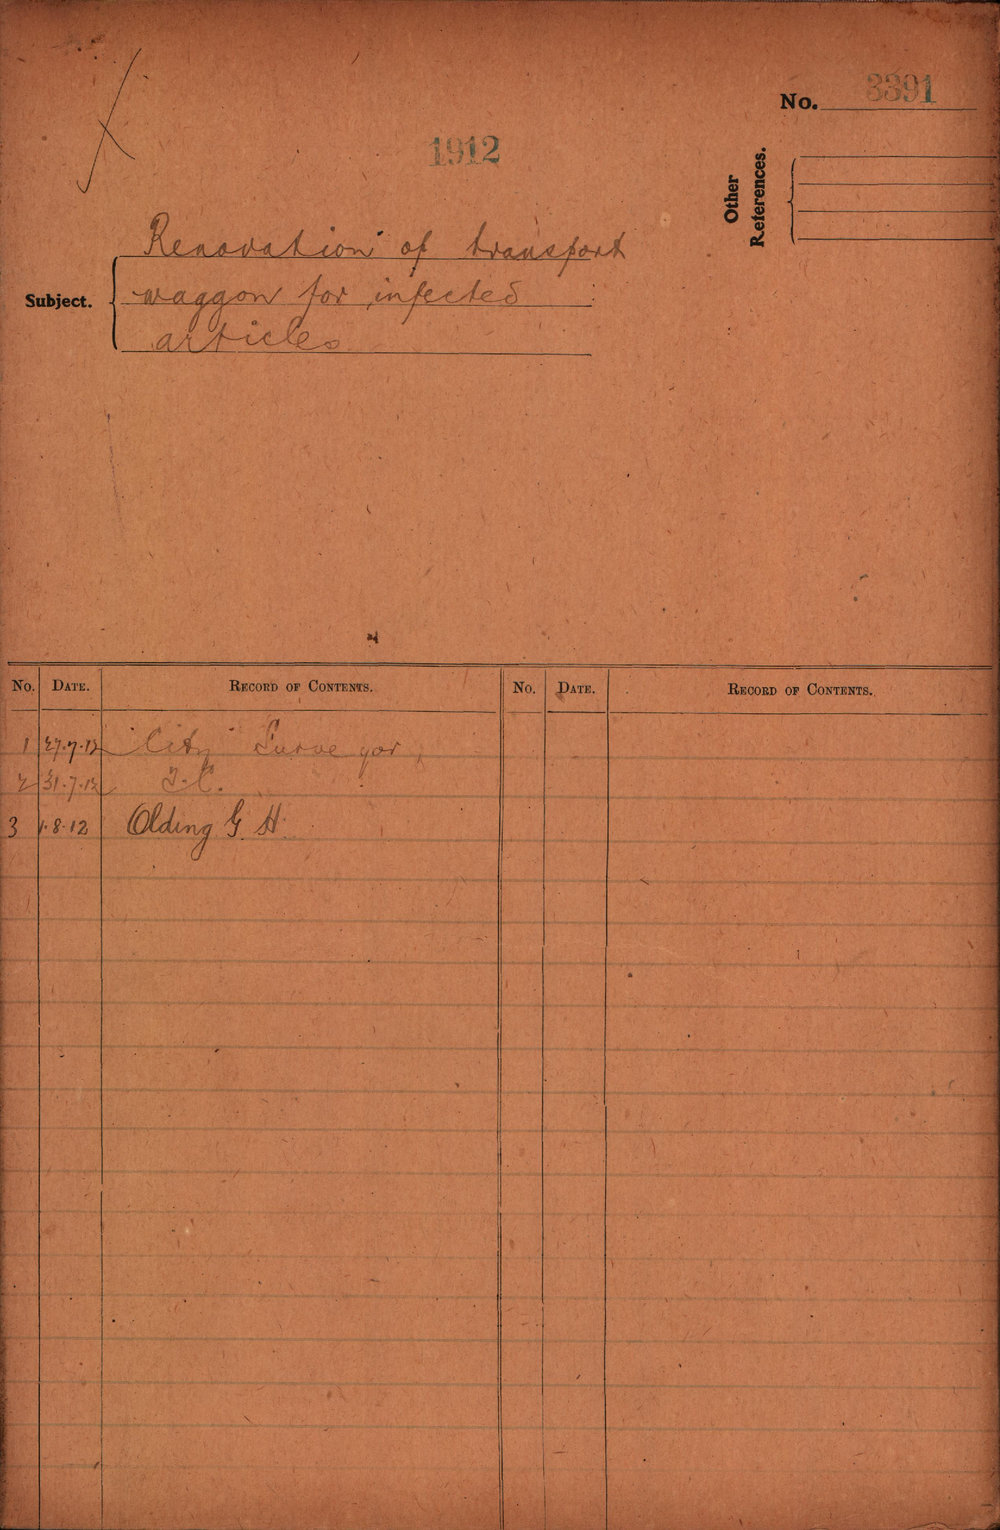 No. 3391
1912
Other
References.
Renovation of transport
Subject. waggon for infected
articles
No. DATE. RECORD OF CONTENTS. No. DATE. RECORD OF CONTENTS.
1 27.7.12 City Surveyor
2 31.7.12 T.C.
3 1.8.12 Olding G. H.